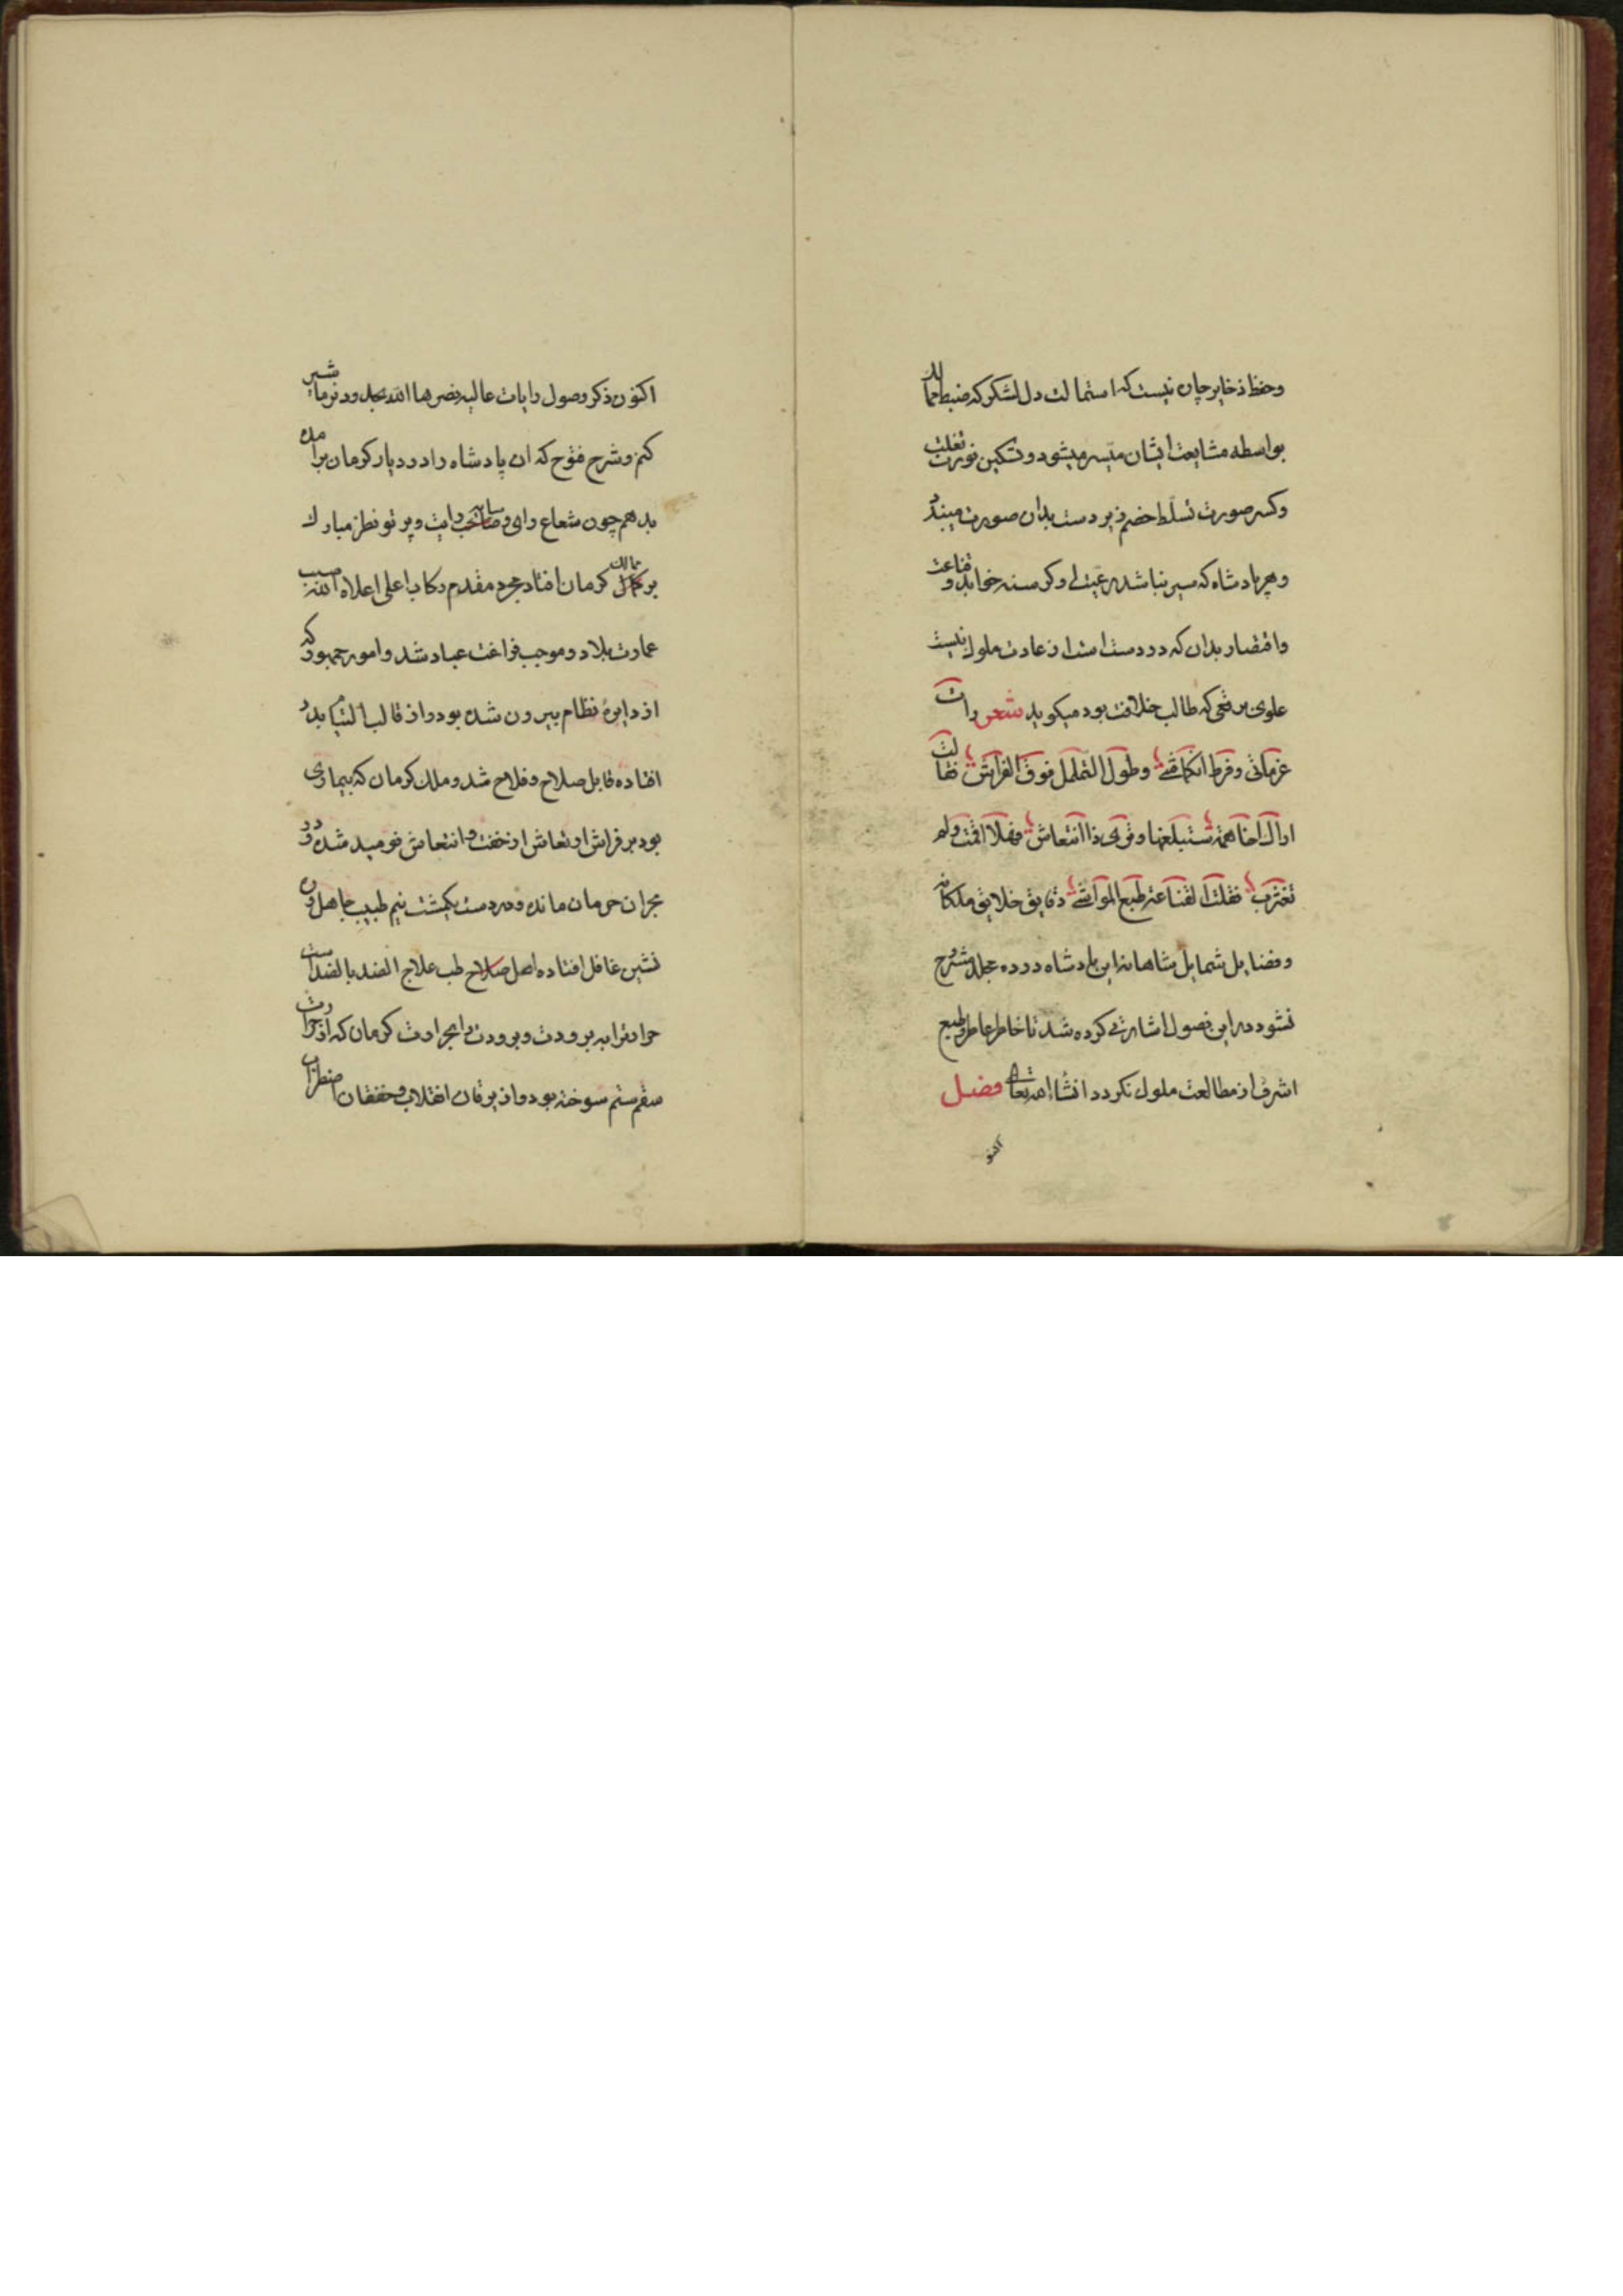 وحفظ ذخایر چان نیست که استمالت دل لشکر که ضبط ممالک
بواسطه مشایعت ایشان متیسر میشود و تسکین نورت تغلب
وکسر صورت تسلط خصم زبر دست بدان صورت میبندد
وهر پادشاه که سیر نباشد رعیت او کرسنه خوابد و قناعت
واقتصار بدان که در دست است از عادت ملوک نیست
علوی برقعی که طالب خلافت بود میکوید شعر رات
عزماتی وفرط انکماشی وطول التململ فوق الفراش فقالت
اراک اخا همة ستبلغها وقوی ذا انتعاش فهلا اقمت ولم
تغترب فقلت القناعة طبع المواشی دقایق خلایق ملکانه
وفضایل شمایل شاهانه این پادشاه در ده مجلد مشروح
نشود در این فصول اشارتی کرده شد تا خاطر عاطر وطبع
اشرف از مطالعت ملول نکردد انشاالله تعالی فصل
اکنو
اکنون ذکر وصول رایات عالیه نصرها الله بحدود نرماشیر
کنم وشرح فتوح که ان پادشاه را در دیار کرمان برامده
بدهم چون شعاع رای و سایه رایت وپرتو نظر مبارک
بر ممالک کرمان افتاد بمجرد مقدم رکاب اعلی اعلاه الله سبب
عمارت بلاد وموجب فراغت عباد شد وامور جمهور که
از دایرۀ نظام بیرون شده بود واز قالب التیام بدر
افتاده قابل صلاح وفلاح شد وملک کرمان که بیماری
بود بر فراش ارتعاش ازخفت وانتعاش نومید شده ودر
بحران حرمان مانده ودر دست یکمشت نیم طبیب جاهل ون
نشین غافل افتاده اصل صلاح طب علاج الضد بالضد است
حرارترا به برودت وبرودت را بحرارت کرمان که از حرارت
سقم ستم سوخته بود واز یرقان انقلاب وخفقان اضطراب